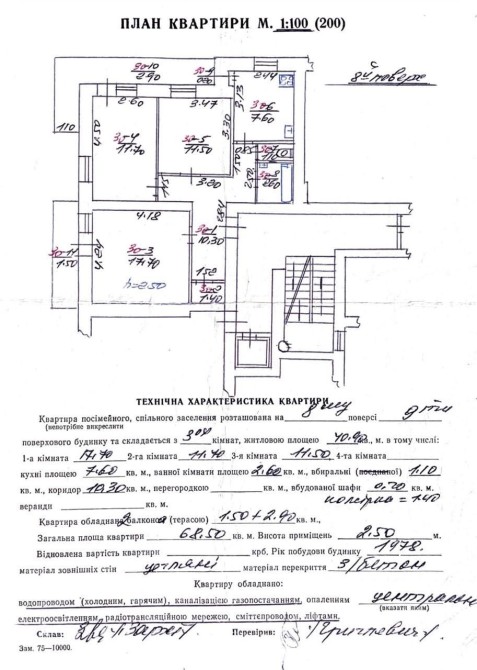 ПЛАН КВАРТИРИ М. 1:100 (200)
8й поверх
30-10
2.90
30-9
2.44
2.60
3.47
3.13
30-6
7.60
110
4.50
30-4
11.70
30-5
11.50
3.30
1.50
0.85
30-7
1.10
1.45
3.20
2.50
30-8
2.60
4.18
2.84
30-1
10.30
30-11
1.50
4.24
30-3
17.70
h=2.50
1.52
30-2
1.40
ТЕХНІЧНА ХАРАКТЕРИСТИКА КВАРТИРИ
Квартира посімейного, спільного заселення розташована на 8 му поверсі 9 ти
(непотрібне викреслити
поверхового будинку та складається з 3 ох кімнат, житловою площею 40.90 кв., м. в тому числі:
1-а кімната 17.70 2-га кімната 11.70 3-я кімната 11.50 4-та кімната
кухні площею 7.60 кв. м., ванної кімнати площею 2.60 кв. м., вбиральні (поєднаної) 1.10
кв. м., коридор 10.30 кв. м., перегородкою кв. м., вбудованої шафи 0.20 кв. м.
веранди кв. м. комірка = 1.40
Квартира обладнана 2 балконом (терасою) 1.50 + 2.90 кв. м.,
Загальна площа квартири 68.50 кв. м. Висота приміщень 2.50 м.
Відновлена вартість квартири крб. Рік побудови будинку 1978.
матеріал зовнішніх стін цегляні матеріал перекриття З/бетон
Квартиру обладнано:
водопроводом (холодним, гарячим), каналізацією газопостачанням, опаленням центральн
(вказати яким)
електроосвітленням, радіотрансляційною мережею, сміттєпроводом, ліфтами.
Склав: Перевірив:
Зам. 75—10000.